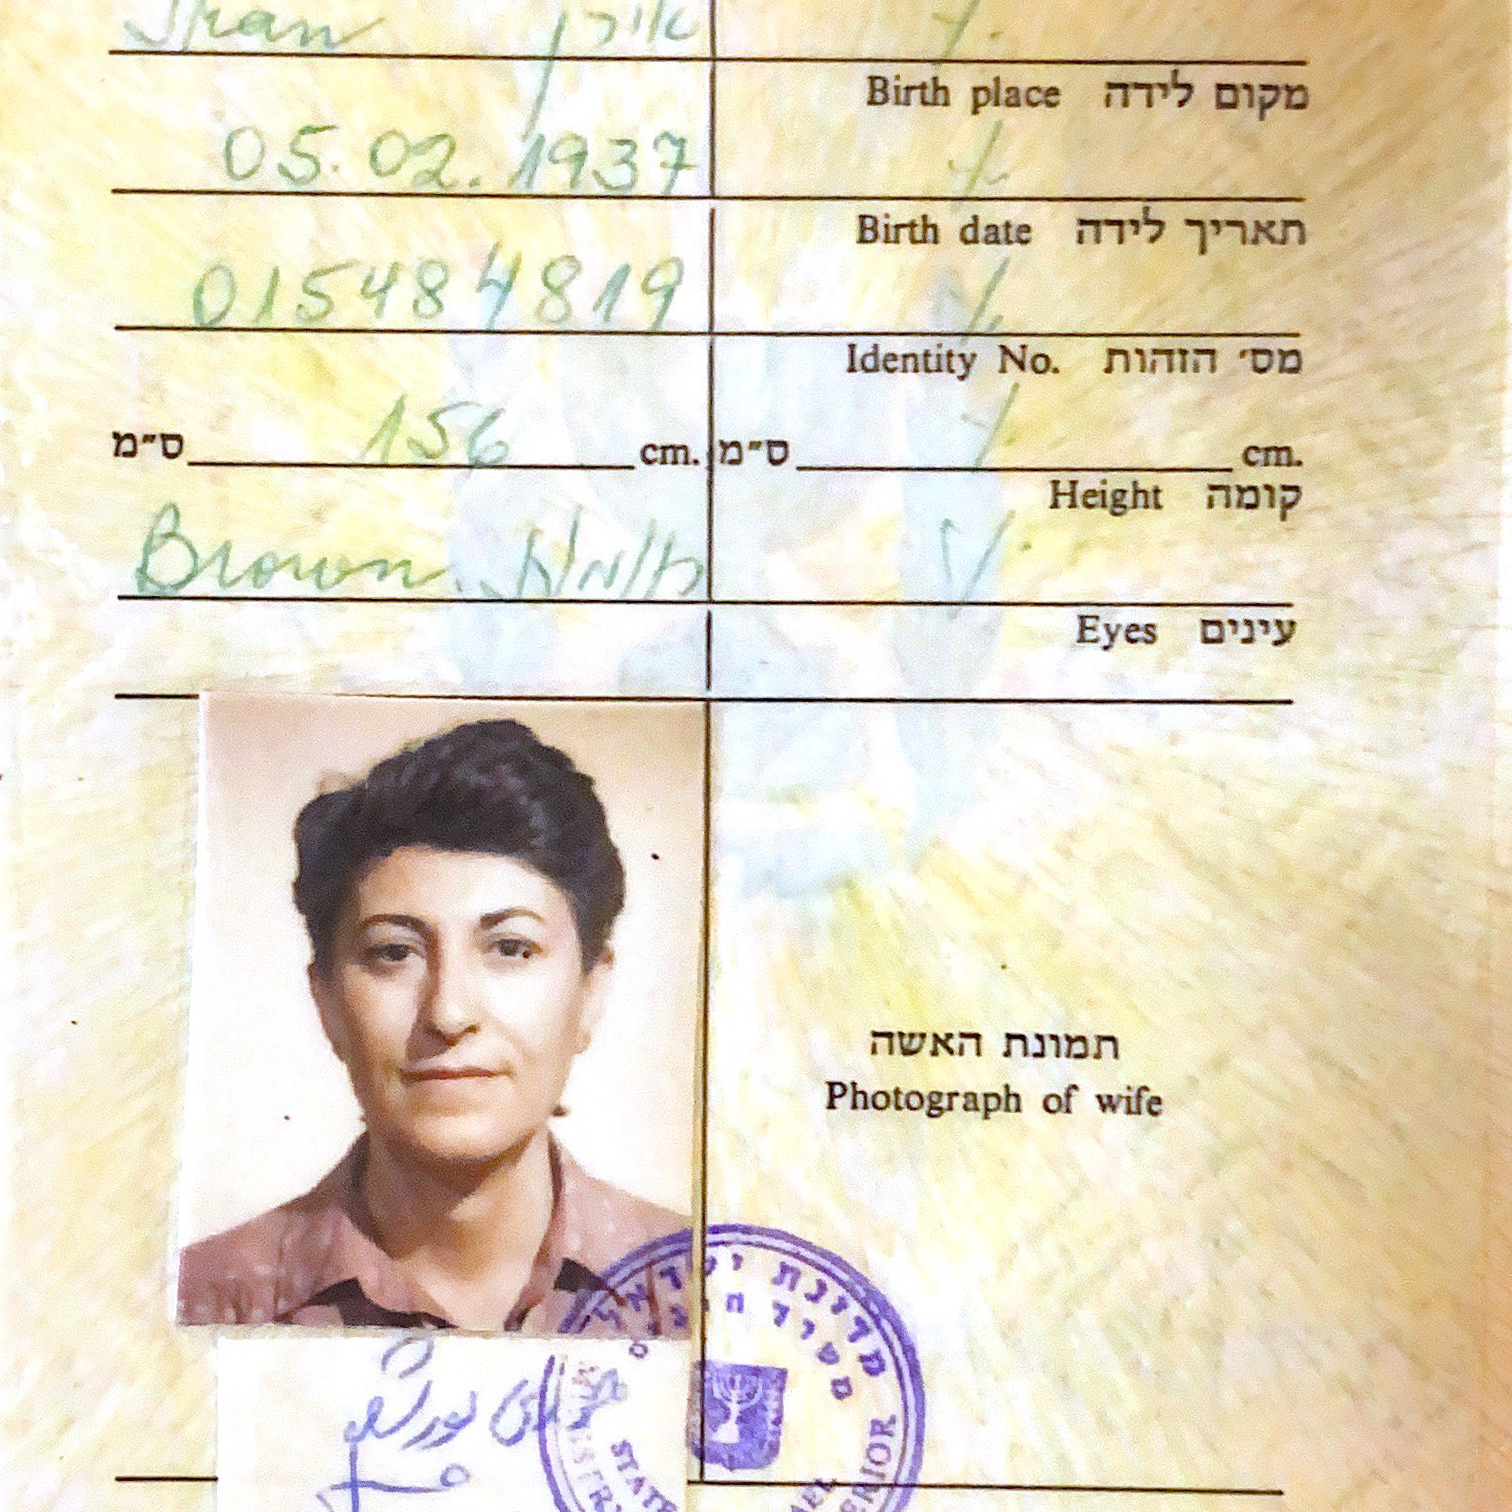 Iran אירן
Birth place מקום לידה
05.02.1937
Birth date תאריך לידה
015484819
Identity No. מס׳ הזהות
ס״מ 156 cm. ס״מ cm.
Height קומה
Brown חומות
Eyes עינים
תמונת האשה
Photograph of wife
מדינת ישראל
משרד הפנים
STATE